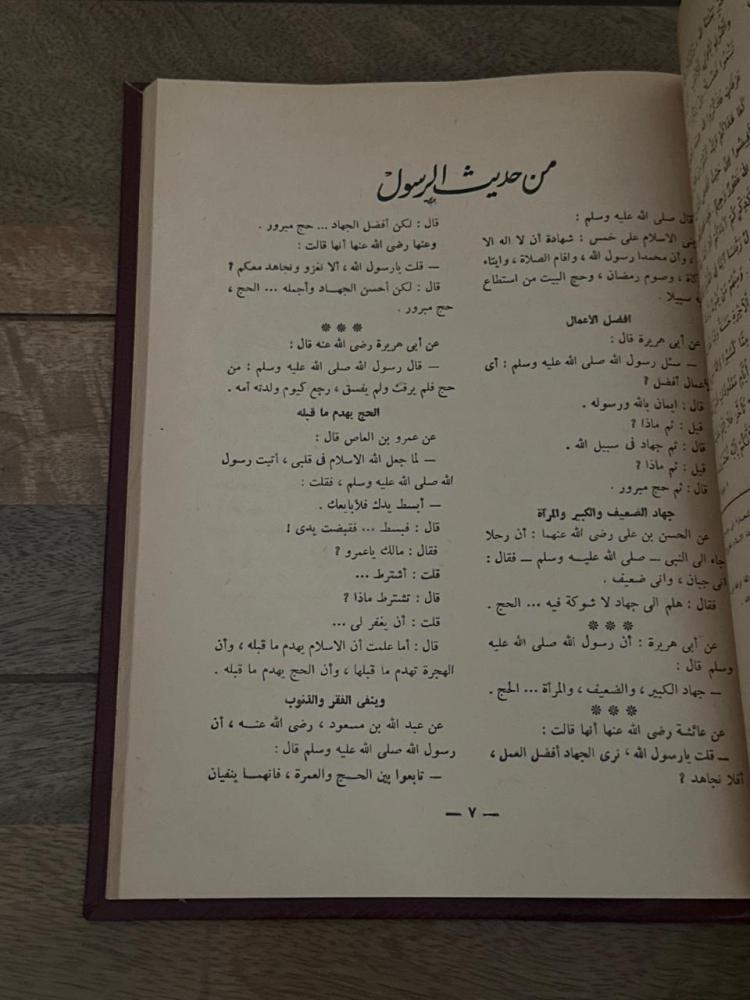 من حديث الرسول
قال صلى الله عليه وسلم :
الاسلام على خمس : شهادة أن لا اله الا
، وأن محمدا رسول الله ، واقام الصلاة ، وايتاء
وصوم رمضان ، وحج البيت من استطاع
سبيلا .
افضل الاعمال
عن أبى هريرة قال :
ــ سئل رسول الله صلى الله عليه وسلم : أى
أفضل ؟
قال : ايمان بالله ورسوله .
قيل : ثم ماذا ؟
قال : ثم جهاد فى سبيل الله .
قيل : ثم ماذا ؟
قال : ثم حج مبرور .
جهاد الضعيف والكبير والمرأة
عن الحسن بن على رضى الله عنهما : أن رجلا
جاء الى النبى ــ صلى الله عليه وسلم ــ فقال :
انى جبان ، وانى ضعيف .
فقال : هلم الى جهاد لا شوكة فيه ... الحج .
***
عن أبى هريرة : أن رسول الله صلى الله عليه
وسلم قال :
ــ جهاد الكبير ، والضعيف ، والمرأة ... الحج .
***
عن عائشة رضى الله عنها أنها قالت :
ــ قلت يارسول الله ، نرى الجهاد أفضل العمل ،
أفلا نجاهد ؟
قال : لكن أفضل الجهاد ... حج مبرور .
وعنها رضى الله عنها أنها قالت :
ــ قلت يارسول الله ، ألا نغزو ونجاهد معكم ؟
قال : لكن أحسن الجهاد وأجمله ... الحج ،
حج مبرور .
***
عن أبى هريرة رضى الله عنه قال :
ــ قال رسول الله صلى الله عليه وسلم : من
حج فلم يرفث ولم يفسق ، رجع كيوم ولدته أمه .
الحج يهدم ما قبله
عن عمرو بن العاص قال :
ــ لما جعل الله الاسلام فى قلبى ، أتيت رسول
الله صلى الله عليه وسلم ، فقلت :
ــ أبسط يدك فلأبايعك .
قال : فبسط ... فقبضت يدى !
فقال : مالك ياعمرو ؟
قلت : أشترط ...
قال : تشترط ماذا ؟
قلت : أن يغفر لى ...
قال : أما علمت أن الاسلام يهدم ما قبله ، وأن
الهجرة تهدم ما قبلها ، وأن الحج يهدم ما قبله .
وينفى الفقر والذنوب
عن عبد الله بن مسعود ، رضى الله عنه ، أن
رسول الله صلى الله عليه وسلم قال :
ــ تابعوا بين الحج والعمرة ، فانهما ينفيان
ــ ٧ ــ